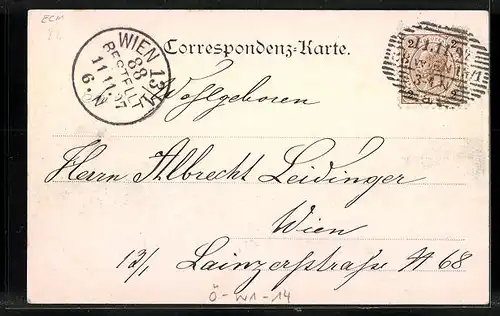 ECM
WIEN 13/1
88
BESTELLT
11.11.97
6.N
Correspondenz-Karte.
Wohlgeboren
Herrn Albrecht Leidinger
Wien
13/1 Lainzerstraße # 68
Ö-W1-14